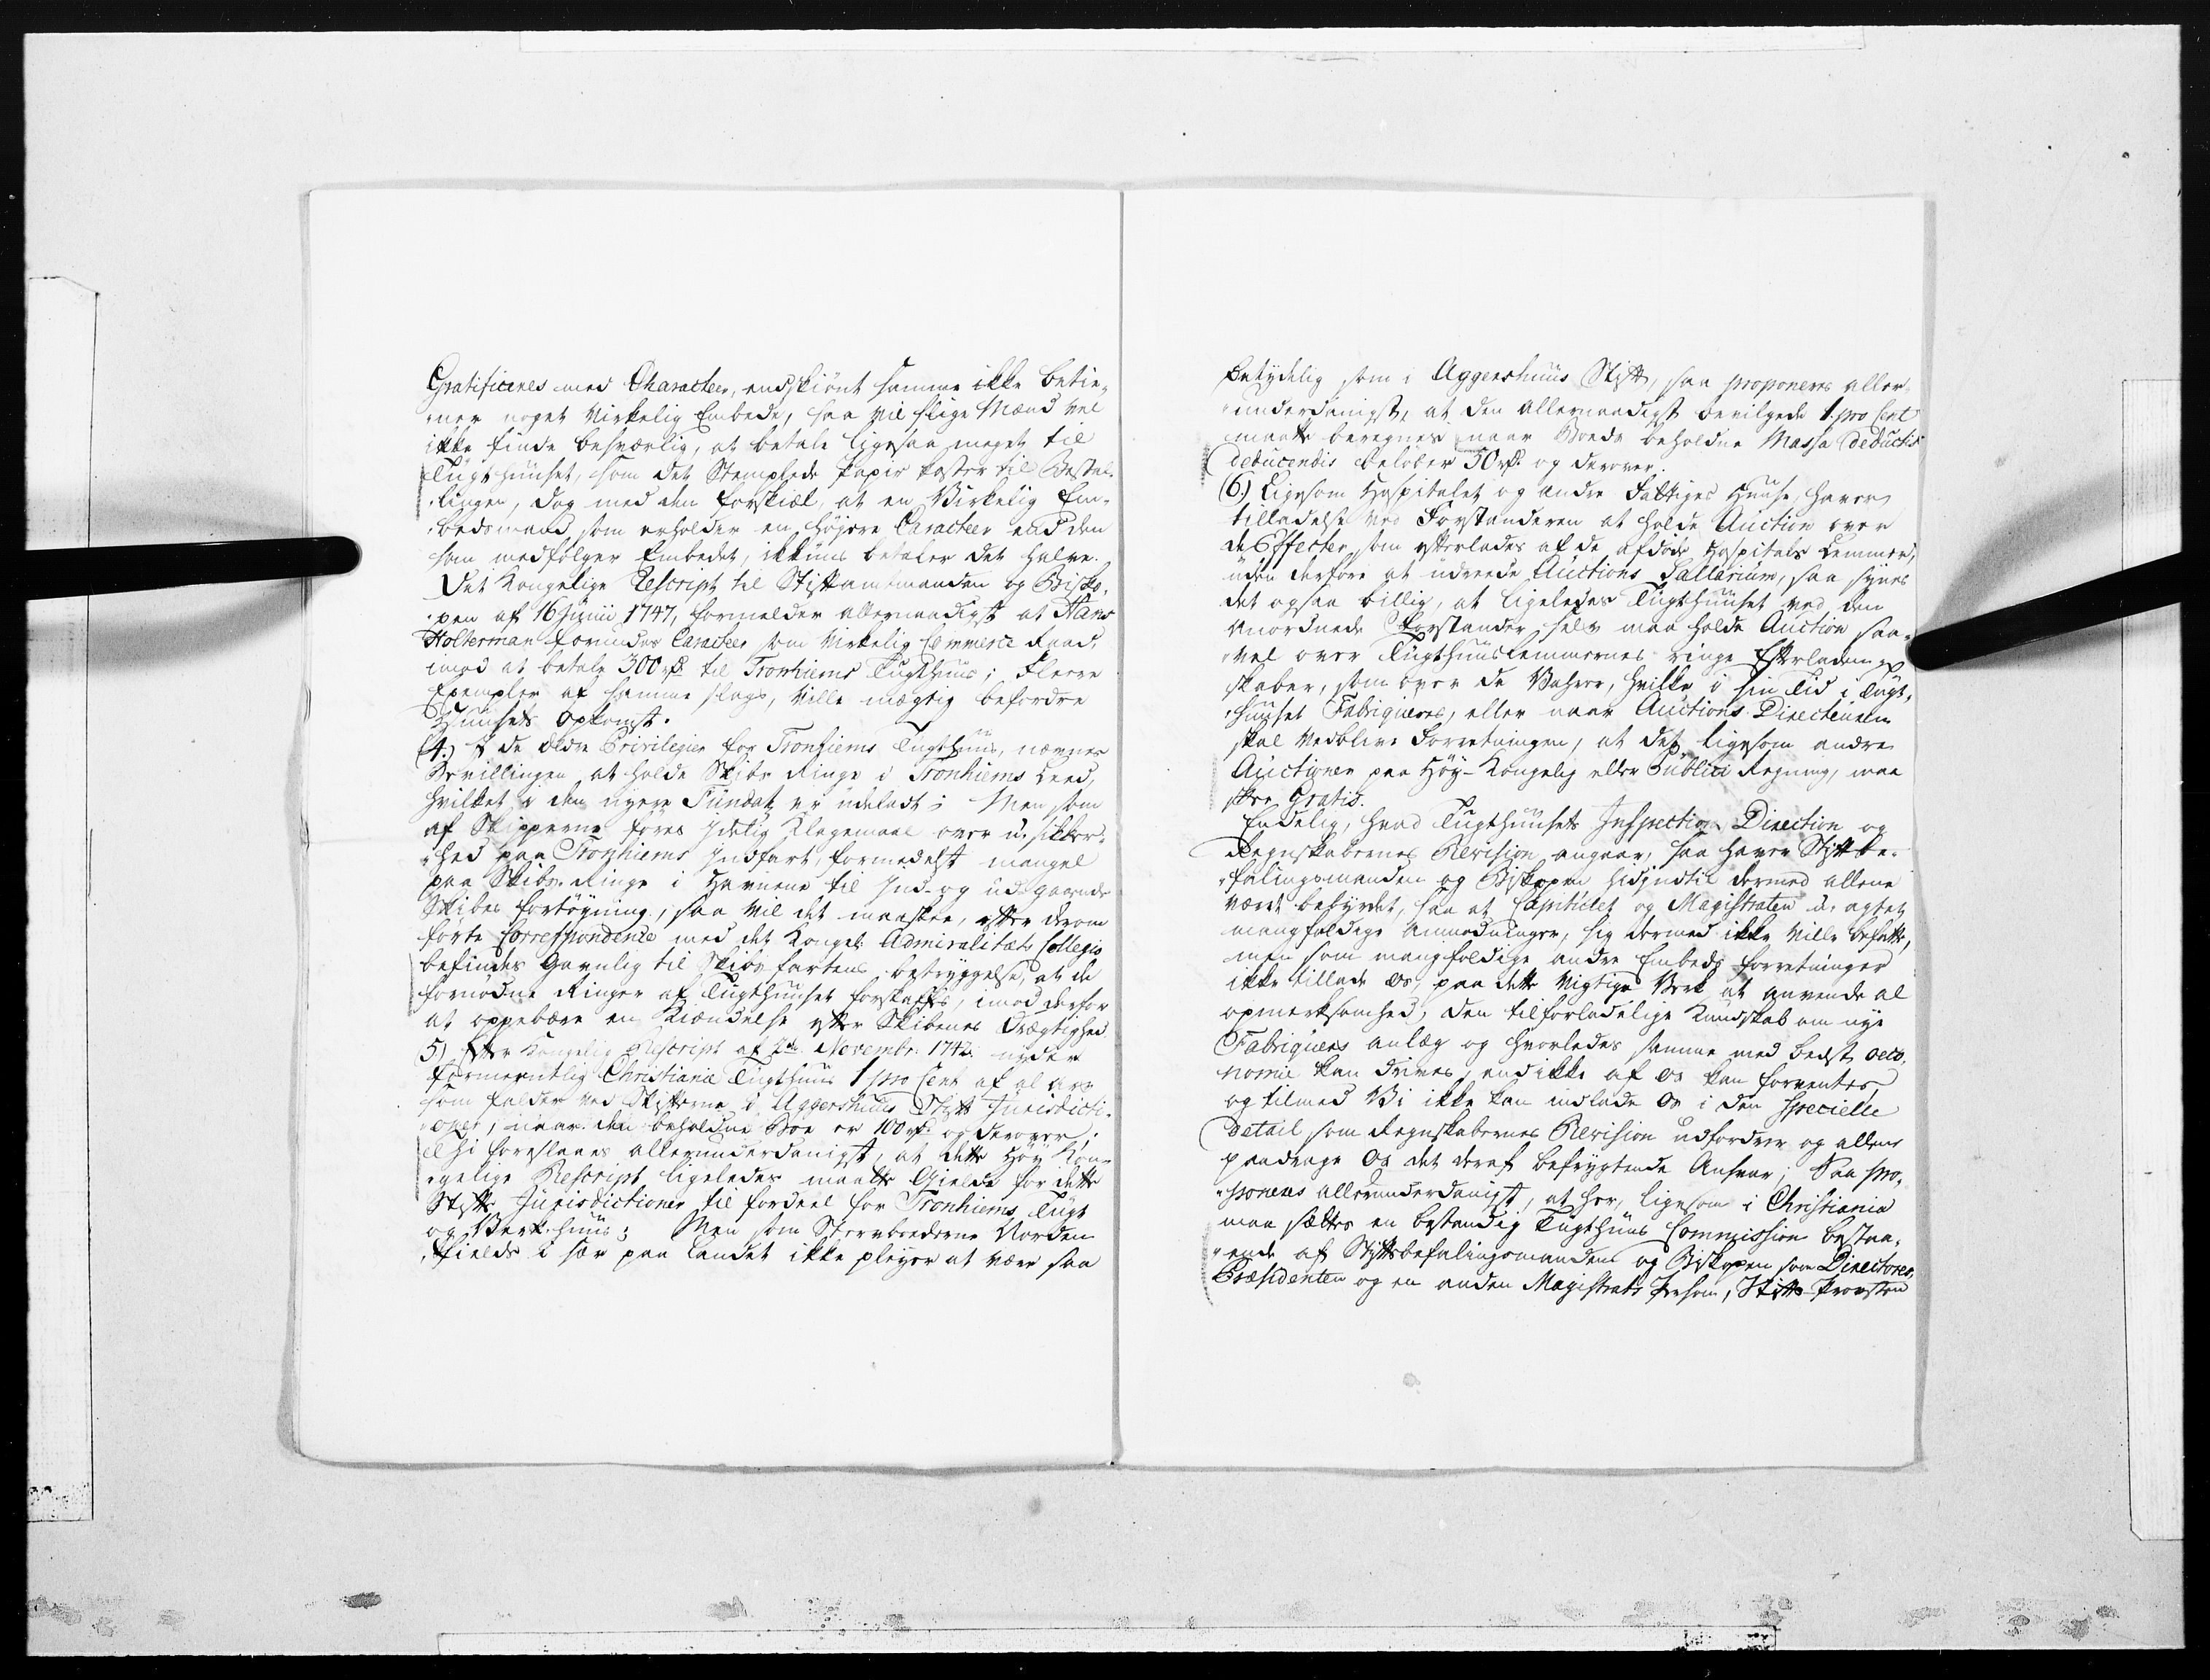 Gratificeres med Characteer, endskiönt samme ikke betie-
ner noget Virkelig Embede, saa vil slige Mænd vel
ikke finde besværlig, at betale ligesaa meget til
Tugthuuset, som det Stemplede Papir koster til Bestal-
lingen, dog med den forskiæl, at en Virkelig Em-
bedsmand som erholder en höyere Caracteer end den
som medfölger Embedet, ikkuns betaler det halve.
Det Kongelige Rescript til Stiftamtmanden og Bisko-
pen af 16 Junii 1747, formelder allernaadigst at Hans
Holterman forundes Caracteer som Virkelig Commerce Raad,
imod at betale 300 rd. til Tronhiems Tugthuus; Fleere
Exempler af samme slags, ville mægtig befordre
Huusets Opkomst.
(4.) I de ældre Privilegier for Tronhiems Tugthuus, nævnes
Bevillingen at holde Skibs Ringe i Tronhiems Leed,
hvilket i den nyere Fundatz er udeladt; Men som
af Skipperne föres idelig Klagemaal over u-sikker-
hed paa Tronhiems Indfart, formedelst mangel
paa Skibs-Ringe i Havnene til Ind- og ud-gaaende
Skibes fortöyning, saa vil det maaskee, efter derom
förte Correspondence med det Kongel: Admiralitæts Collegio
befindes Gavnlig til Skibs fartens betryggelse, at de
fornödne Ringer af Tugthuuset forskaffes, imod derfor
at oppebære en Kiændelse efter Skibenes Drægtighed
5) Efter Kongelig Rescript af 2de Novembr: 1742. nyder
formeentlig Christiania Tugthuus 1 pro Cent af al arv
som falder ved Skifterne i Aggershuus Stifts Jurisdicti-
oner, naar den beholdne Boe er 100 rd. og derover;
Thi foreslaaes allerunderdanigst, at dette Höy Kon-
gelige Rescript ligeledes maatte Gielde for dette
Stifts Jurisdictioner til fordeel for Tronhiems Tugt
og Verk-huus; Men som Stervboederne Norden-
fields i sær paa Landet ikke pleyer at være saa
betydelig som i Aggershuus Stift, saa proponeres aller-
underdanigst, at den allernaadigst bevilgede 1. pro Cent
maatte beregnes naar Boeds beholdne Massa deductis
deducendis belöber 50 rd. og derover.
(6.) Ligesom Hospitalet og andre Fattiges Huuse, haver
tilladelse ved Forstanderen at holde Auction over
de Effecter som efterlades af de afdöde Hospitals Lemmer,
uden derfore at udreede Auctions Sallarium, saa synes
det ogsaa billig, at ligeledes Tugthuuset ved den
anordnede Forstander selv maa holde Auction saa-
vel over Tugthuuslemmernes ringe Efterladen-
skaber, som over de Vahrer, hvilke i sin tid i Tugt-
huuset Fabriqueres, eller naar Auctions Directeuren
skal vedblive Forretningen, at det ligesom andre
Auctioner paa Höy-Kongelig eller Publici Regning, maa
skee Gratis.
Endelig, hvad Tugthuusets Inspection Direction og
Regnskabernes Revision angaar, saa haver Stiftbe-
falingsmanden og Biskopen hidindtil dermed allene
været besyrdet, saa at Capitulet og Magistraten u-agtet
mangfoldige anmodninger, sig dermed ikke ville befatte,
men som mangfoldige andre Embeds forretninger
ikke tillade os, paa dette vigtige Verk at anvende al
opmerksomhed, den tilforladelige Kundskab om nye
Fabriquers anlæg og hvorledes samme med bedst oeco-
nomie kan drives, end ikke af os kan forventes,
og tilmed Vi ikke kan indlade os i den specielle
Detail som Regnskabernes Revision udfordrer og allene
paadrage os det deraf befrygtende Ansvar; Saa pro-
poneres allerunderdanigst, at her, ligesom i Christiania
maa sættes en bestandig Tugthuus Commission bestaa-
ende af Stiftsbefalingsmanden og Biskopen som Directores,
Præsidenten og en anden Magistrats Person, Stifts-Provsten